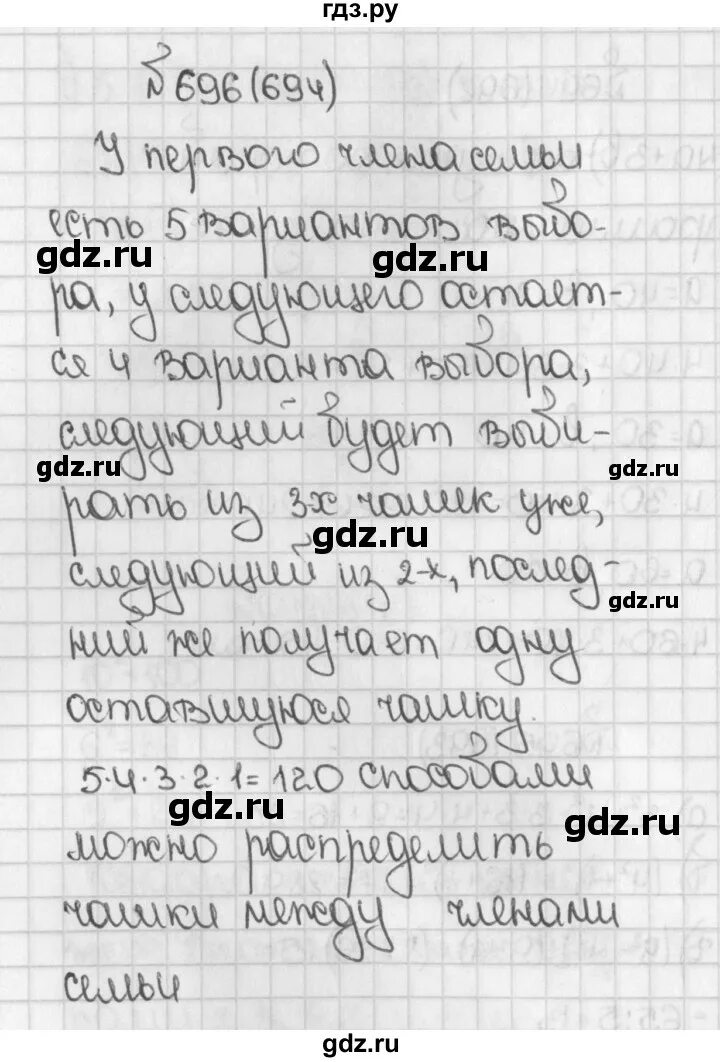 гдз.ру
№696(694)
У первого члена семьи
есть 5 вариантов выбо-
gdz.ru gdz.ru
ра, у следующего остает-
ся 4 варианта выбора,
следующий будет выби-
gdz.ru gdz.ru
рать из 3х чашек уже,
gdz.ru
следующий из 2-х, послед-
gdz.ru
ний же получает одну
оставшуюся чашку.
5·4·3·2·1=120 способами
gdz.ru gdz.ru
можно распределить
чашки между членами
семьи
gdz.ru